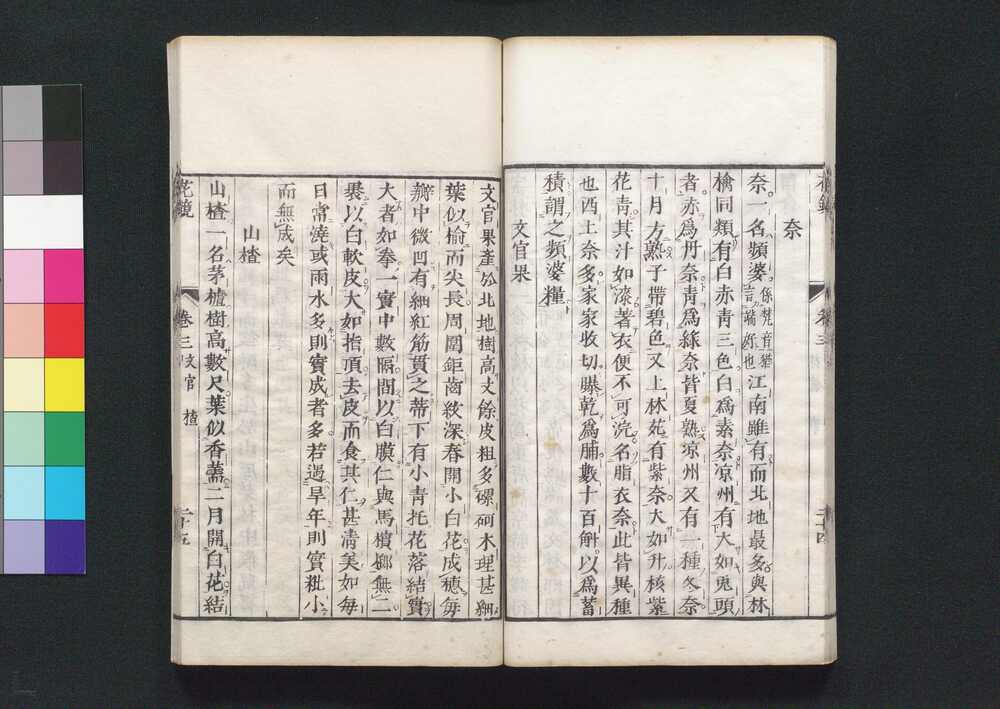 花鏡 卷三 二十四
柰
柰。一名頻婆係梵音猶言端好也江南雖有而北地最多與林
檎同類有白赤青三色白爲素柰凉州有大如兎頭
者。赤爲丹柰青爲緑柰皆夏熟凉州又有一種冬柰
十月方熟子帶碧色又上林苑有紫柰大如升核紫
花青其汁如漆著衣便不可浣名脂衣柰此皆異種
也西土柰多家家收切曝乾爲脯數十百斛以爲蓄
積謂之頻婆糧
文官果
文官果產於北地樹高丈餘皮粗多磥砢木理甚細
葉似榆而尖長周圍鉅齒紋深春開小白花成穗每
瓣中微凹有細紅筋貫之蒂下有小青托花落結實
大者如拳一實中數隔間以白膜仁與馬檳榔無二
裹以白軟皮大如指頂去皮而食其仁甚清美如每
日常澆或雨水多則實成者多若遇旱年則實粃小
而無成矣
山樝
山樝一名茅樝樹高數尺葉似香薷二月開白花結
花鏡 卷三 文官 樝 二十五